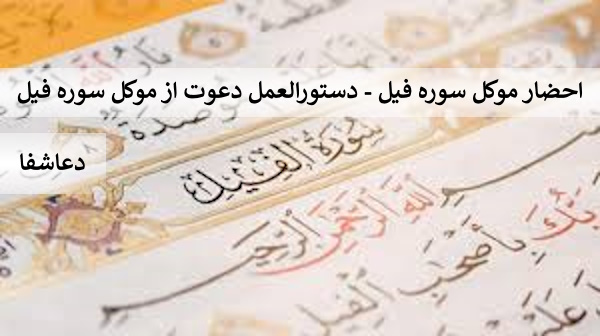 احضار موکل سوره فیل - دستورالعمل دعوت از موکل سوره فیل
دعاشفا
سُورَةُ الفِيلِ
اللَّهِ الرَّحْمَٰنِ الرَّحِيمِ
بِأَصْحَٰبِ الْفِيلِ